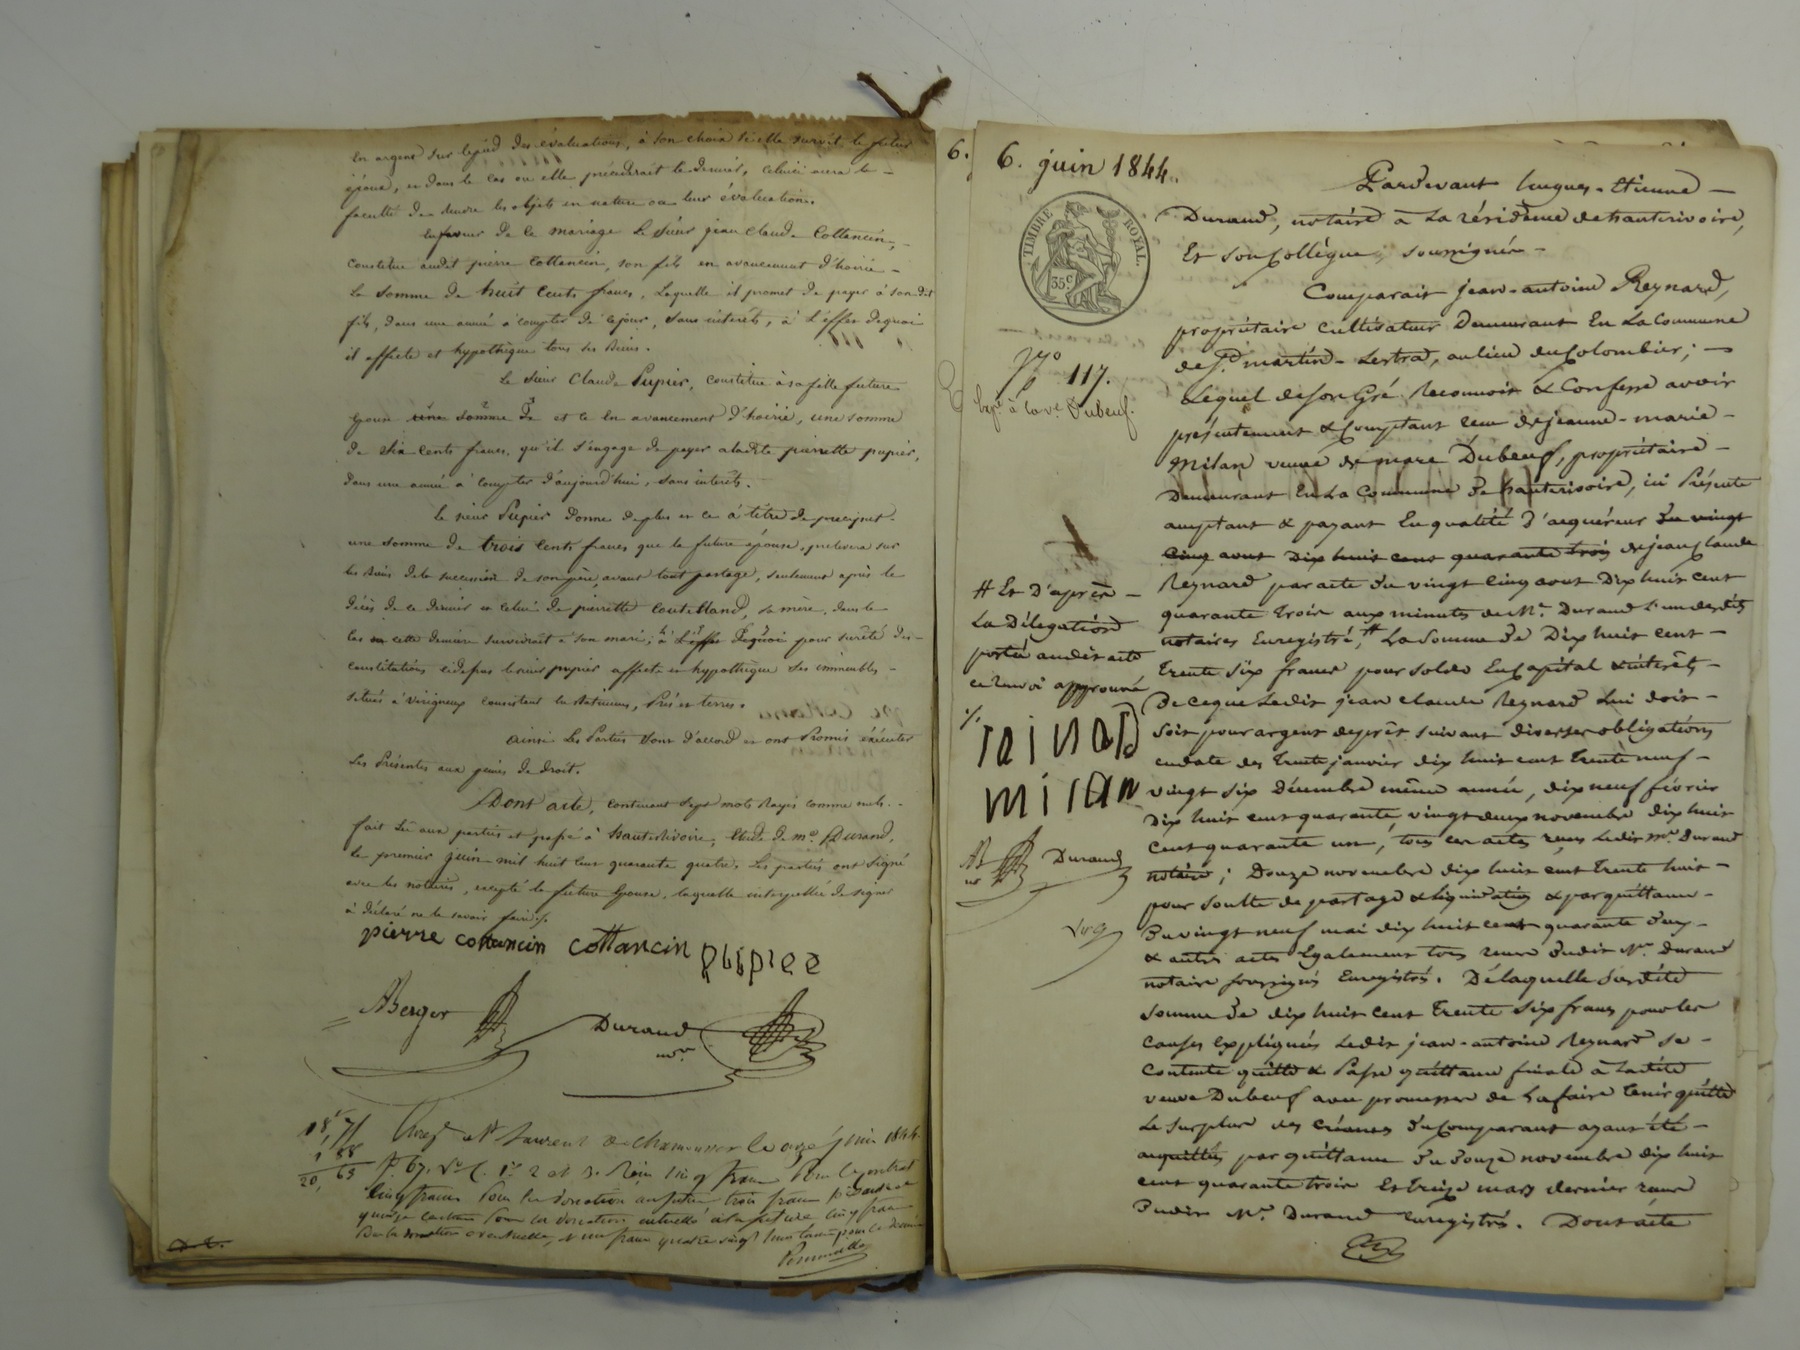 en argent sur le pied des évaluations, à son choix si elle survit le futur
époux, et dans le cas ou elle précéderait le dernier, celui ci aura la
faculté de rendre les objets en nature ou leur évaluation.
En faveur de ce mariage le sieur jean Claude Cottancin,
constitue audit pierre Cottancin, son fils en avancement d'hoirie
la somme de huit cents francs, laquelle il promet de payer à son dit
fils, dans une année à compter de ce jour, sans intérêts, à l'effet de quoi
il affecte et hypothèque tous ses biens.
Le sieur Claude Pupier, constitue à sa fille future
épouse une somme de et ce en avancement d'hoirie, une somme
de six cents francs, qu'il s'engage de payer à ladite pierrette pupier,
dans une année à compter d'aujourd'hui, sans intérêts.
le sieur Pupier donne de plus et ce à titre de preciput
une somme de trois cents francs que la future épouse, prelevera sur
les biens de la succession de son père, avant tout partage, seulement après le
décès de ce dernier et celui de pierrette , sa mère, dans le
cas ou cette derniere survivrait à son mari; à l'effet de quoi pour sureté des
constitutions cidessus le sieur pupier affecte et hypothèque ses immeubles
situés à virigneux consistant en Batimens, Prés et terres.
Ainsi les Parties sont d'accord et ont Promis exécuter
les Présentes aux peines de droit.
Dont acte, contenant sept mots Rayés comme nuls.
fait lu aux parties et passé à hauterivoire, étude de me Durand,
le premier juin mil huit cent quarante quatre, les parties ont signé
avec les notaires, excepté la future épouse, laquelle interpellée de signer
à déclaré ne le savoir faire ./.
pierre cottancin cottancin pupiee
ABerger
Durand
nore
18, 71
1 88
20, 65
Enregé à St Laurent de Chamousset le onze juin 1844
f. 67. Vo C. 1re 2 et 3. Reçu cinq francs Pour le contrat
cinq francs Pour la donation au futur trois francs
quinze centimes Pour la donation à la future cinq francs
Pour la donation éventuelle, et un franc quatre vingt huit centimes pour le dixième
6.
6. juin 1844.
TIMBRE ROYAL.
35 c.
117.
Expe à la ve Dubeuf.
Pardevant hugues-Etienne
Durand, notaire à La résidence de hauterivoire,
Et son Collègue, soussignés
Comparait jean-antoine Reynard,
propriétaire cultivateur Demeurant En La Commune
de St martin-Lestrad, au lieu du Colombier;
Lequel de son Gré Reconnoit & Confesse avoir
présentement & Comptant reçu de jeanne-marie
Milan veuve de marc Dubeuf, propriétaire
Demeurant En La Commune de hauterivoire, ici Présente
acceptant & payant En qualité d'acquéreur du vingt
cinq aout Dix huit cent quarante trois de jean Claude
Reynard par acte du vingt cinq aout Dix huit cent
quarante trois aux minutes de Me. Durand l'un desdits
notaires Enregistré, # La somme de Dix huit cent
trente six francs pour solde En Capital & intérêts
De ce que Ledit jean claude Reynard Lui doit
soit pour argent de prêt suivant diverses obligations
en date des trente janvier dix huit cent trente neuf
vingt six décembre même année, dix neuf février
dix huit cent quarante, vingt deux novembre dix huit
cent quarante un, tous ces actes reçus Ledit Me. Durand
notaire; Douze novembre dix huit cent trente huit
pour soulte de partage & liquidation & par quittance
Du vingt neuf mai dix huit cent quarante deux
& autres actes Egalement tous reçus dudit Me. Durand
notaire soussigné Enregistrés. De laquelle susdite
somme de dix huit cent trente six francs pour les
causes expliquées Ledit jean-antoine Reynard se
contente quitte & Passe quittance finale à Ladite
veuve Dubeuf avec promesse de La faire tenir quitte
Le surplus des Créances du Comparant ayant été
acquittées par quittance du douze novembre dix huit
cent quarante trois Et treize mars dernier reçue
Dudit Me. Durand Enregistrés. Dont acte
# Et D'après
La Délégation
portée audit acte
ce renvoi approuvé
./.
rainard
milan
AB
nre
Durand